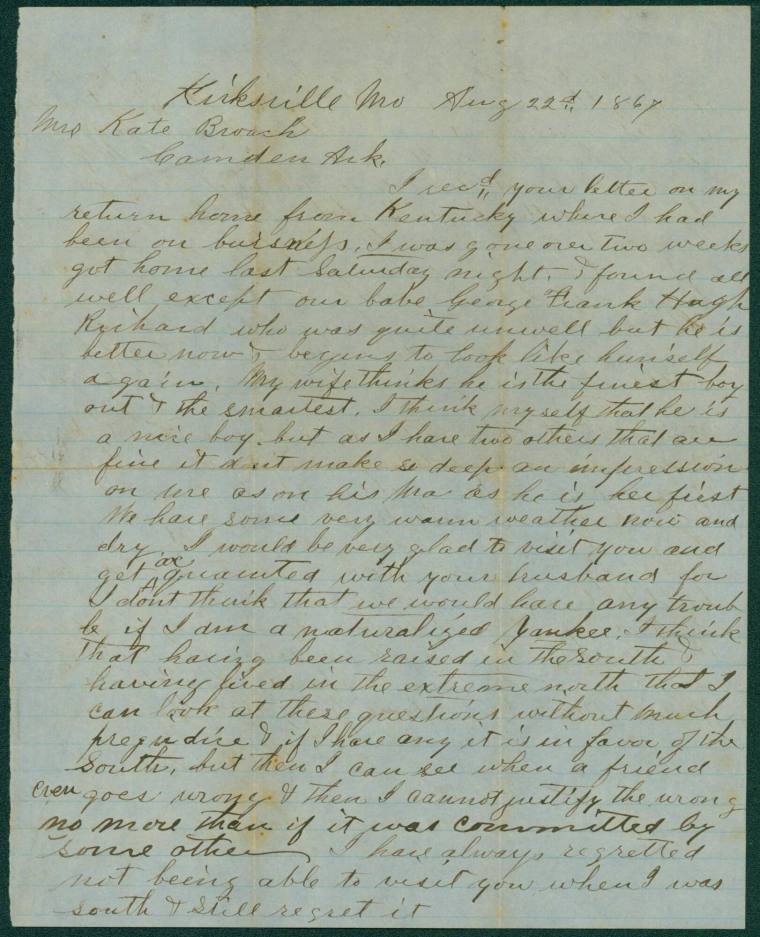 Kirksville Mo Aug 22d, 1867
Mrs Kate Broach
Camden Ark.
I recd your letter on my
return home from Kentucky where I had
been on bussness. I was gone over two weeks
got home last Saturday night. & found all
well except our babe George Frank Hugh
Richard who was quite unwell but he is
better now & begins to look like himself
again. My wife thinks he is the finest boy
out & the smartest. I think myself that he is
a nice boy. but as I have two others that are
fine it dont make so deep an impression
on me as on his Ma as he is her first
We have some very warm weather now and
dry. I would be very glad to visit you and
get acquainted with your husband for
I dont think that we would have any troub
le if I am a naturalized Yankee. I think
that having been raised in the south &
having lived in the extreme north that I
can look at these questions without much
prejudice & if I have any it is in favor of the
South, but then I can see when a friend
even goes wrong & then I cannot justify the wrong
no more than if it was committed by
some other I have always regretted
not being able to visit you when I was
South & still regret it